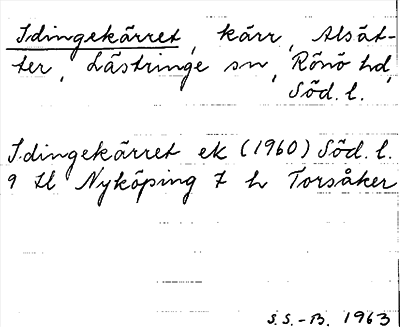 Idingekärret, kärr, Alsät-
ter, Lästringe sn, Rönö hd,
Söd. l.
Idingekärret ek (1960) Söd. l.
9 H Nyköping 7 h Torsåker
S.S.-B. 1963